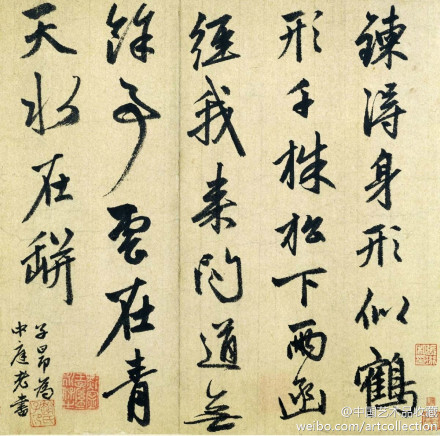 鍊得身形似鶴
形千株松下兩函
經我來問道無
餘事雲在青
天水在缾
子昂為
中庭老書
@中国艺术品收藏
weibo.com/artcollection